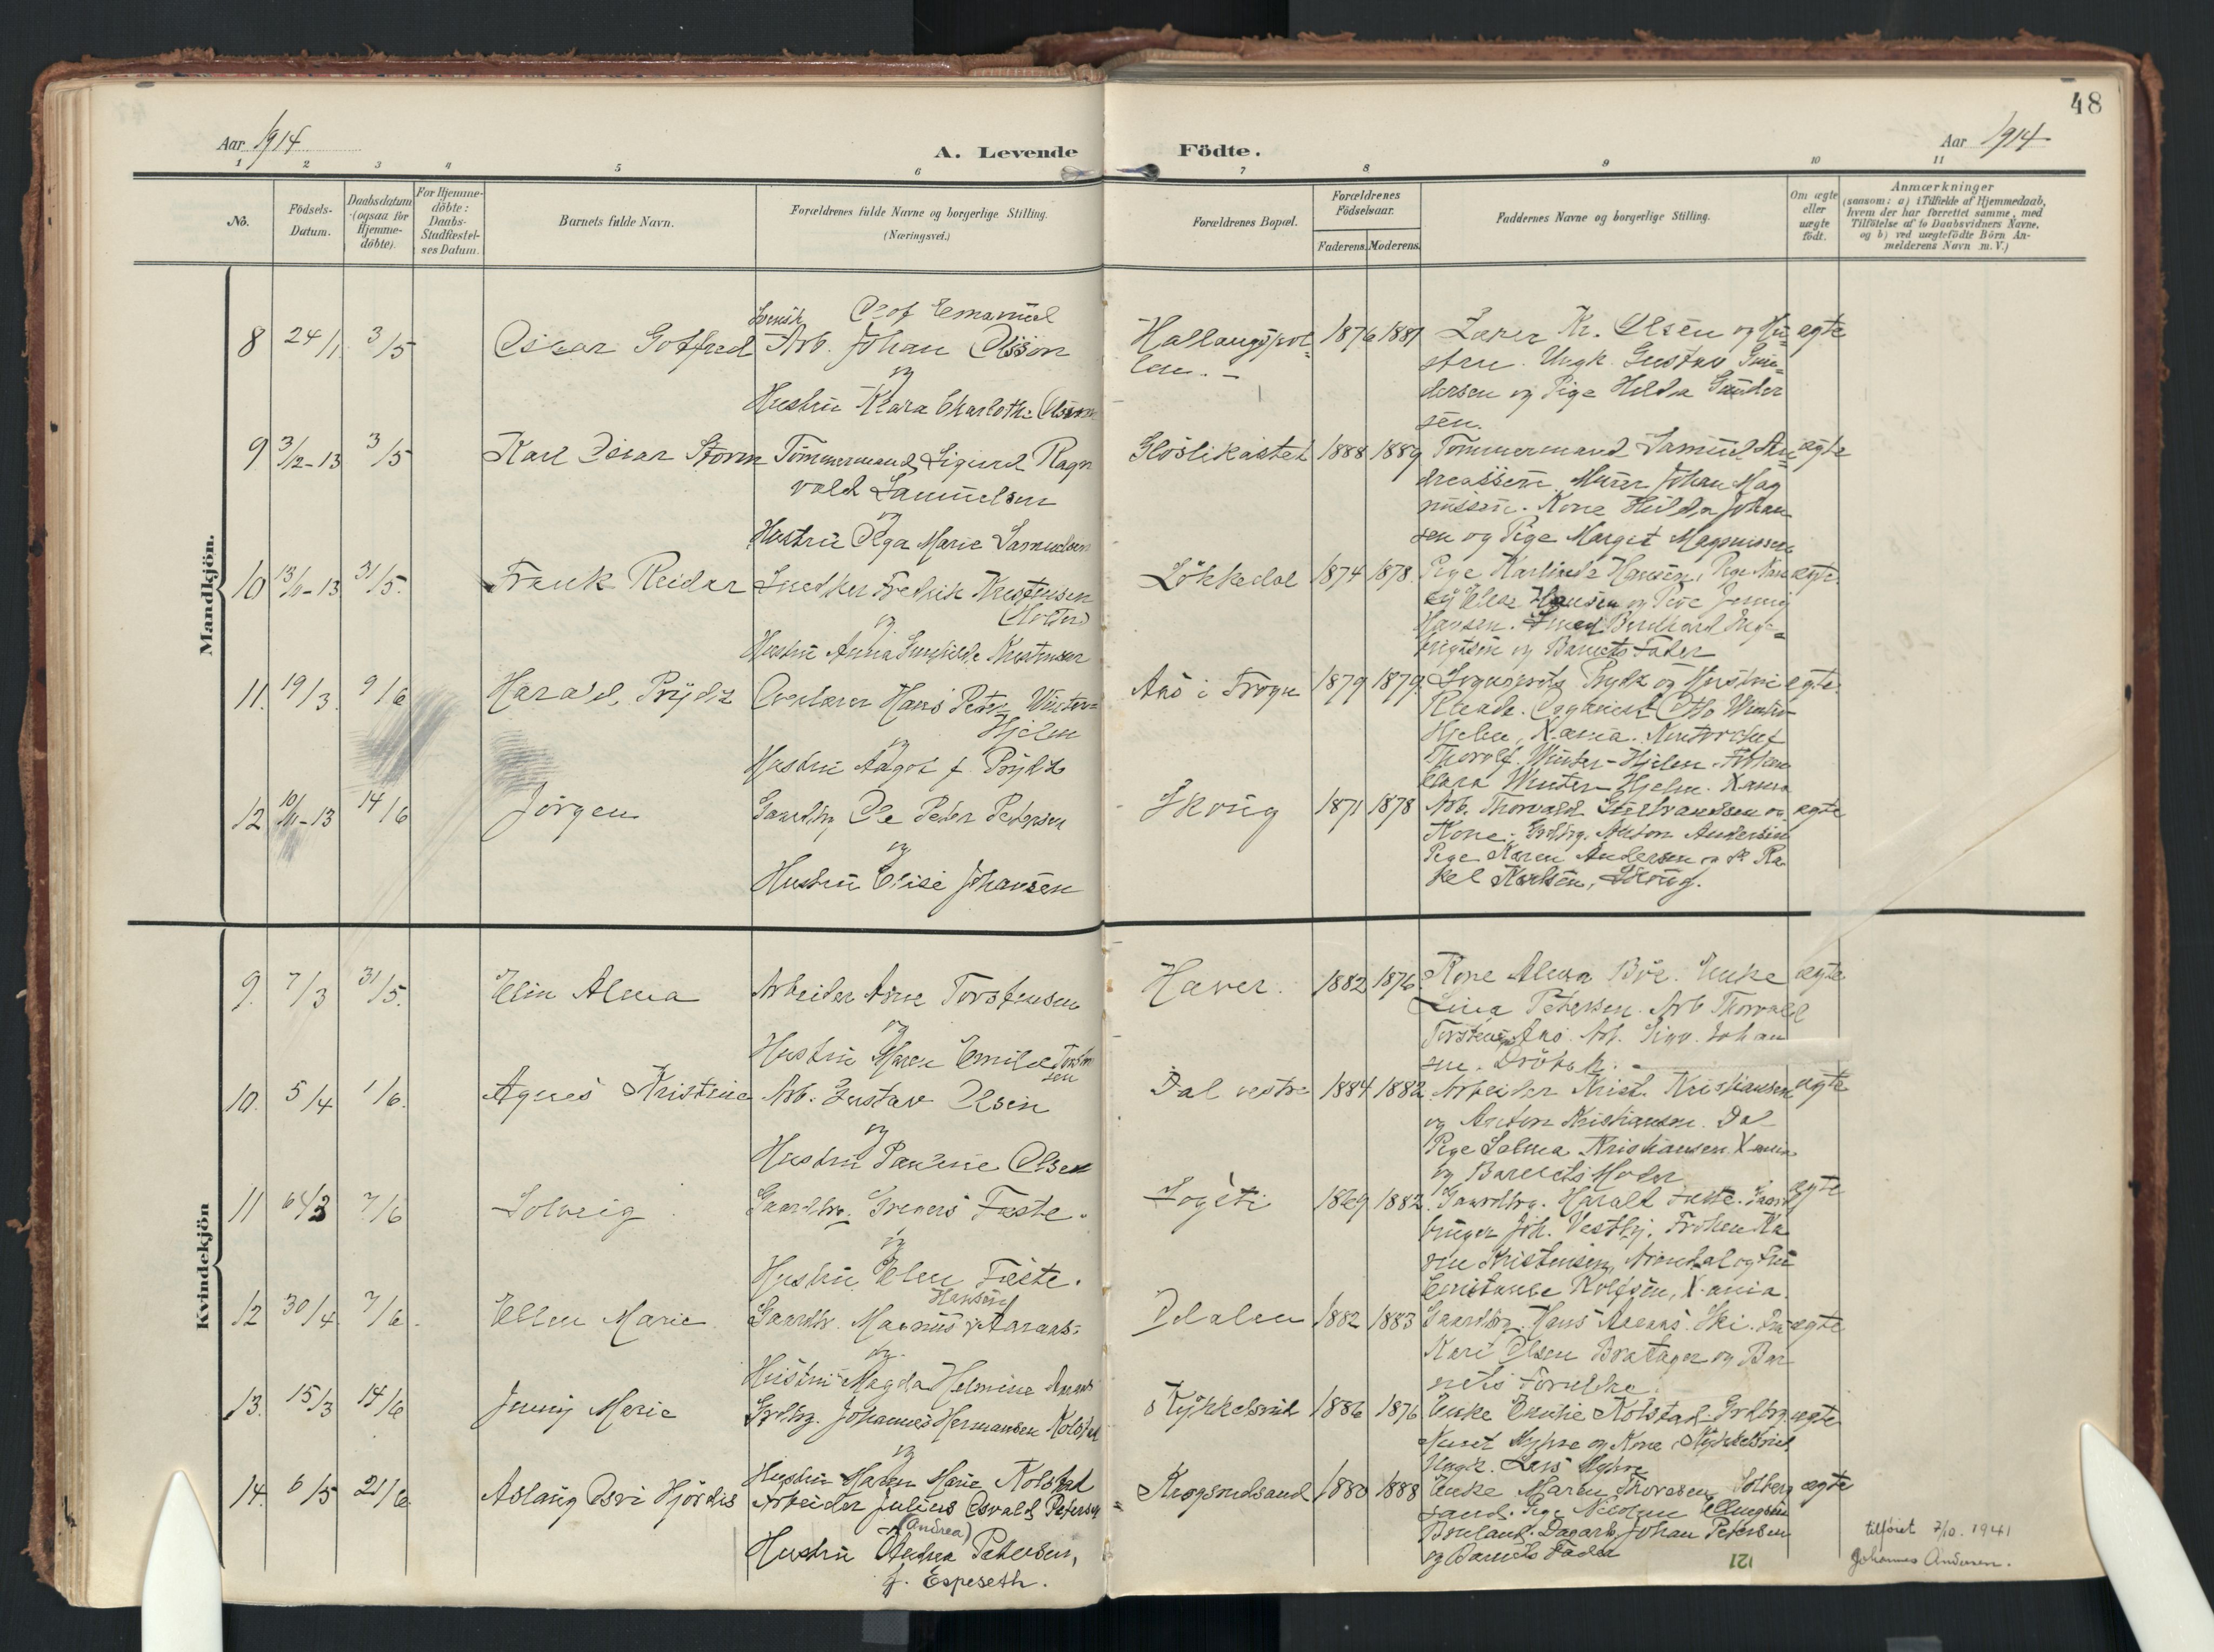 48
Aar 1914
A. Levende Födte.
Aar 1914
1 2 3 4 5 6 7 8 9 10 11
No.
Födsels-
Datum.
Daabsdatum
(ogsaa for
Hjemme-
döbte).
For Hjemme-
döbte:
Daabs-
Stadfæstel-
ses Datum.
Barnets fulde Navn.
Forældrenes fulde Navne og borgerlige Stilling.
(Næringsvei.)
Forældrenes Bopæl.
Forældrenes
Födselsaar.
Faderens. Moderens.
Faddernes Navne og borgerlige Stilling.
Om ægte
eller
uægte
födt.
Anmærkninger
(saasom: a) i Tilfælde af Hjemmedaab,
hvem der har forrettet samme, med
Tilföielse af to Daabsvidners Navne,
og b) ved uægtefödte Börn An-
melderens Navn m. V.)
Mandkjön.
8 24/1 3/5
Oscar Gotfred
Svensk Olof Emanuel
Arb. Johan Olsson
og
Hustru Klara Charlothe Olsson
1876 1881
Kr. Olsen og Hu-
stru. Ungk. Gustav Gun-
dersen og Pige Hilda Gunder
sen.
ægte
9 3/12-13 3/5
Karl Oscar Storm
Tömmermand Sigurd Ragn
vald Samuelsen
og
Hustru Olga Marie Samuelsen
Glöslikastet
1888 1889
Tömmermand Samuel An-
dreassen. Murer Johan Mag
nussen. Kone Hilda Johan
sen og Pige Margit Magnussen
ægte
10 13/11-13 31/5.
Frank Reidar
Snedker Fredrik Kristensen
og
Hustru Anna Gunhilde Kristensen
Lökkedal
1874 1878.
Pige Karlinde Hansen, Pige
Hansen og Pige Jenny
Hansen. Bernhard Inge-
brigtsen og Barnets Fader
ægte.
11. 19/3. 9/6
Harald Prydz
Overlærer Hans Peter Winter-
Hjelm
og
Hustru Aagot f. Prydz
Aas i Frogn
1879 1879.
Sogneprest Prydz og Hustru
Organist Otto Winter-
Hjelm, X.ania. Kontorchef
Thorolf Winter-Hjelm. Fröken
Clara Winter Hjelm. X.ania
ægte.
12 10/11-13 14/6
Jörgen
Gaardbr. Ole Peder Pedersen
og
Hustru Elise Johansen
Skoug
1871 1878
Arb. Thorvald Gulbrandsen og
Kone. Grdbrg. Anton Andersen
Pige Karen Andersen og P. Ra
kel Karlsen, Skoug.
ægte
Kvindekjön
9. 7/3 31/5.
Elin Alma
Arbeider Arne Torstensen
og
Hustru Maren Emilie Torsten
sen
Haver.
1882 1876
Kone Alma Böe. Enke
Lina Petersen. Arb. Thorvald
Torstens. Aas. Arb. Johan
sen. Dröbak.
ægte
10. 5/4 1/6.
Agnes Kristine
Arb. Gustav Olsen
og
Hustru Pauline Olsen
Dal vestre
1884 1882
Arbeider Krist. Kristiansen
og Anton Kristiansen. Dal
Pige Selma Kristiansen X.ania
og Barnets Moder
ægte
11 7/6
Solveig
Gaardbr. Gregers Fæste.
og
Hustru Elen Fæste.
1869 1882.
Gaardbrg. Harald Fæste. Gaard
bruger Joh. Vestby. Fröken Ka
ren Kristensen, Arendal og Fru
Constance Rolfsen, X.ania.
ægte
12 30/4 7/6.
Ellen Marie
Hansen
Gaardbr. Magnus Aaraas.
og
Hustru Magda Helmine Aaraas
Odalen
1882 1883
Gaardbrg. Hans Aaraas. Ski.
Kari Olsen Bratager og Bar
nets Forældre.
ægte
13. 15/3 14/6
Jenny Marie
Grdbrg. Johannes Hermansen Kolstad
og
Hustru Maren Marie Kolstad
Nykkelsrud
1886 1876
Enke Emilie Kolstad. Grdbrg
Knut Myhre og Kone, Nykkelsrud
Ungk. Lars Myhre
ægte
14. 6/5 21/6
Aslaug Osvi Hjördis
Arbeider Julius Osvald Petersen
og (Andrea)
Hustru Andrea Petersen,
f. Espeseth.
Krogsrudsand
1880 1888
Enke Maren Thoresen Solberg
sand. Pige Nicoline Ellingsen
Dagarb. Johan Petersen
og Barnets Fader
ægte
tilföiet 7/10. 1941
Johannes Andersen.
121